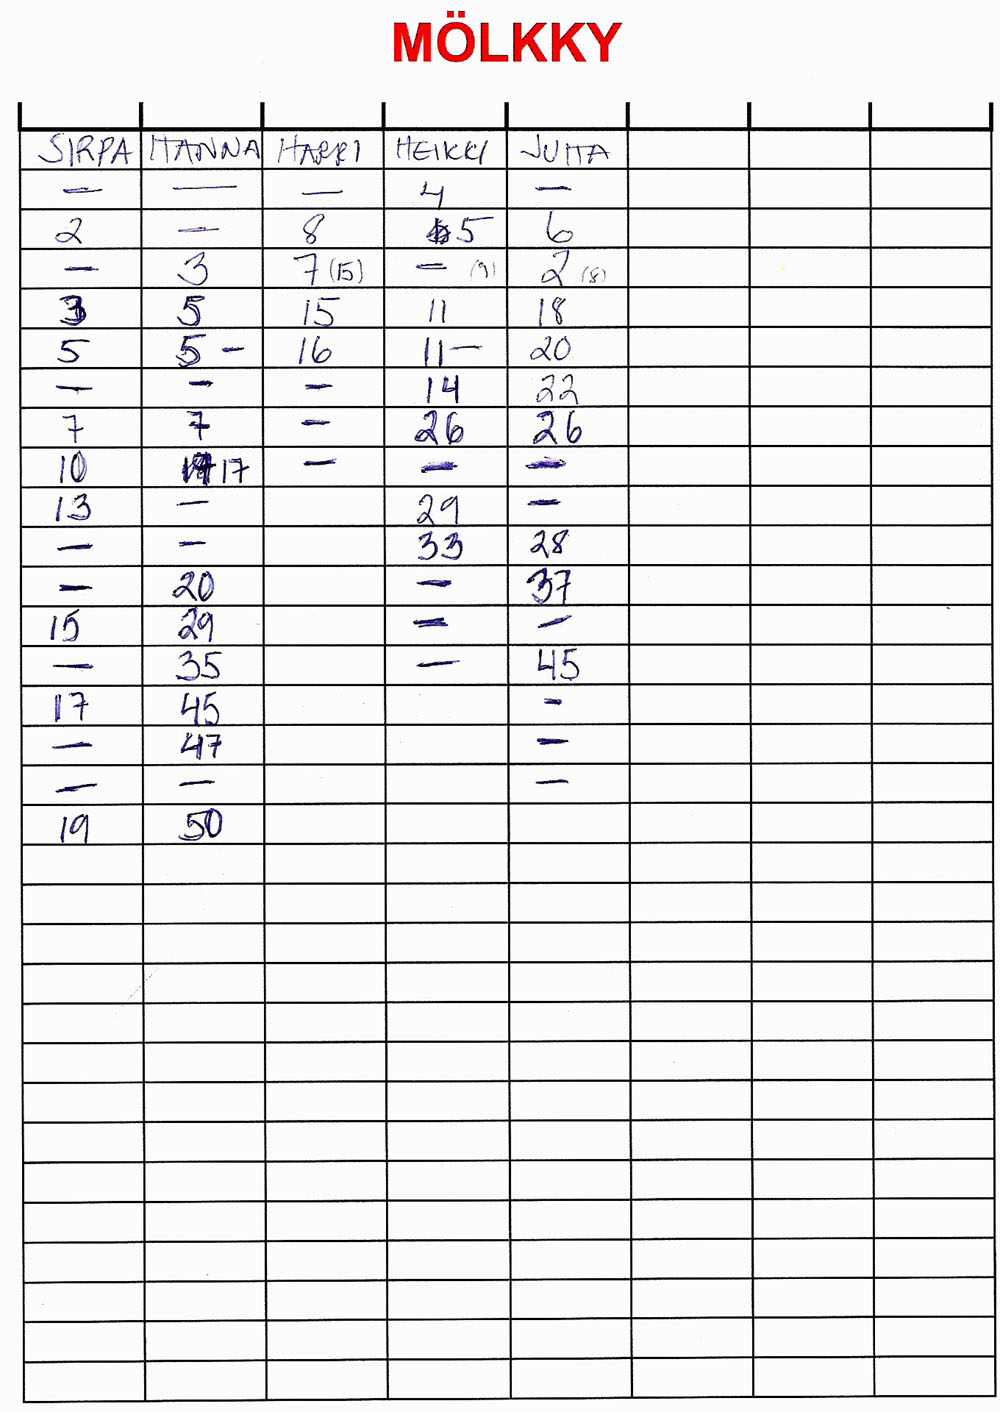 MÖLKKY
SIRPA HANNA HARRI HEIKKI JUHA
— — — 4 —
2 — 8 5 6
— 3 7 (15) — (9) 2 (8)
3 5 15 11 18
5 5 — 16 11 — 20
— — — 14 22
7 7 — 26 26
10 17 — — —
13 — 29 —
— — 33 28
— 20 — 37
15 29 — —
— 35 — 45
17 45 —
— 47 —
— — —
19 50